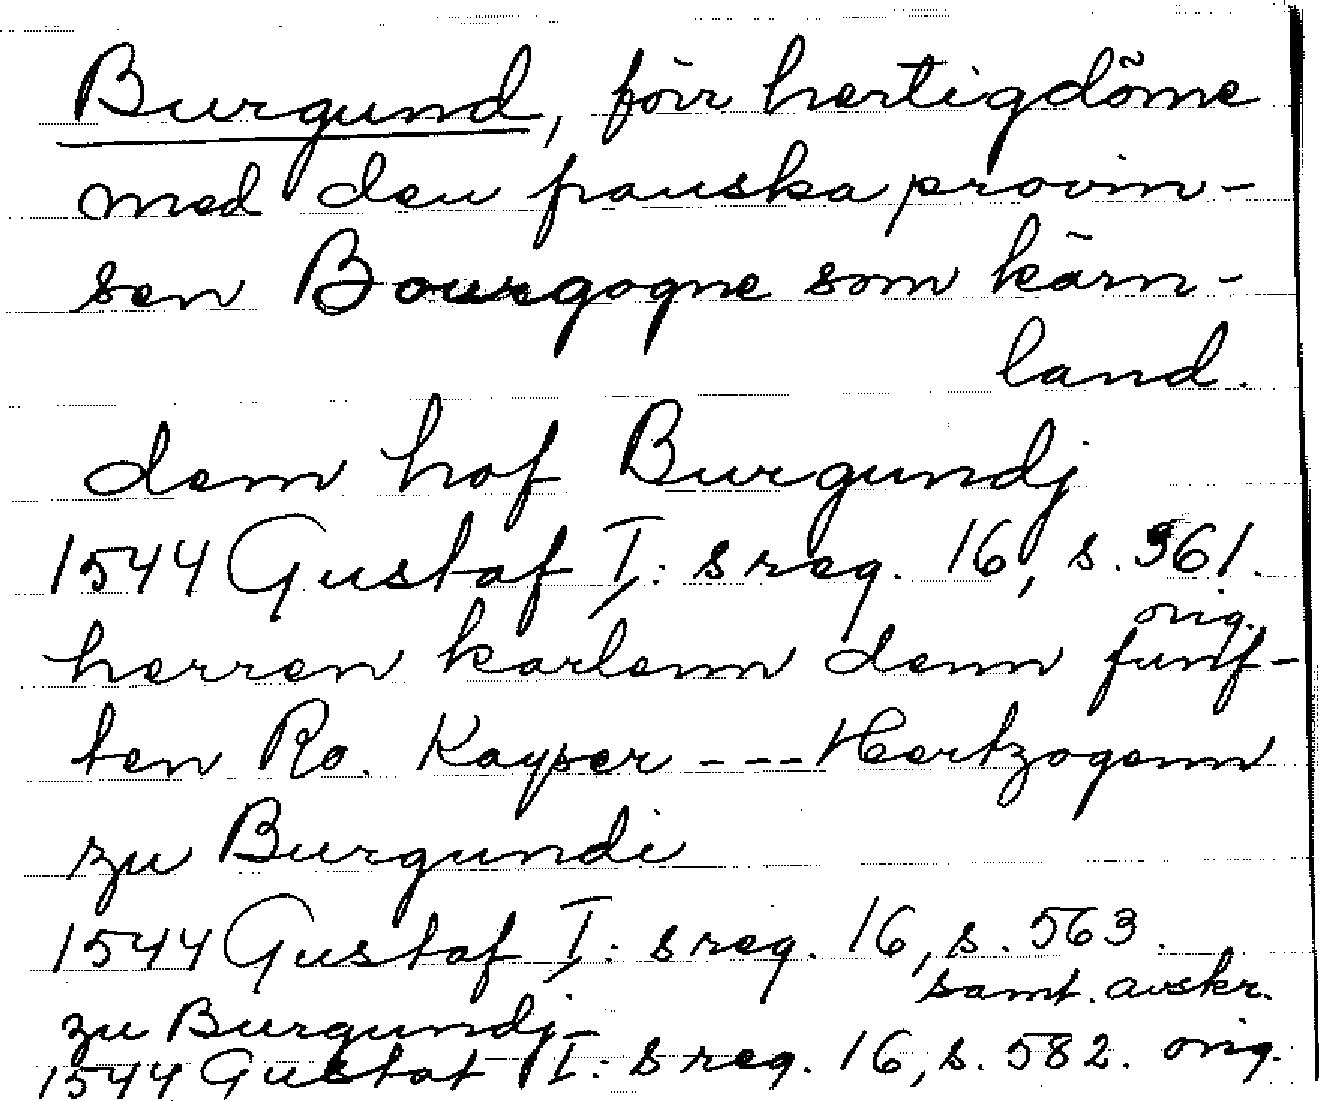 Burgund, förr hertigdöme
med den franska provin-
sen Bourgogne som kärn-
land.
dem hof Burgundj
1544 Gustaf I:s reg. 16, s. 561.
orig.
herren karlenn denn funf-
ten Ro. Kayser --- Hertzogenn
zu Burgundi
1544 Gustaf I:s reg. 16, s. 563.
samt. avskr.
zu Burgundj-
1544 Gustaf I:s reg. 16, s. 582. orig.